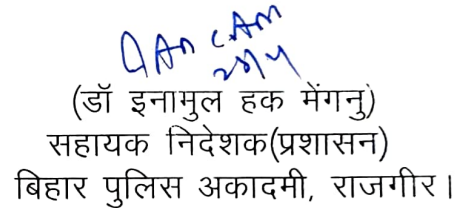 (डॉ इनामुल हक मेंगनु)
सहायक निदेशक(प्रशासन)
बिहार पुलिस अकादमी, राजगीर।